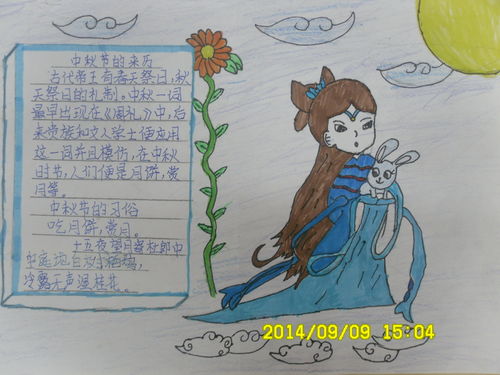 中秋节的来历
古代帝王有春天祭日,秋
天祭日的礼制。中秋一词
最早出现在《周礼》中,后
来贵族和文人学士使应用
这一词并且模仿,在中秋
时节,人们便是月饼,赏
月等
中秋节的习俗
吃月饼,赏月。
十五夜望月寄杜郎中
中庭地白
冷露无声湿桂花。
2014/09/09 15:04